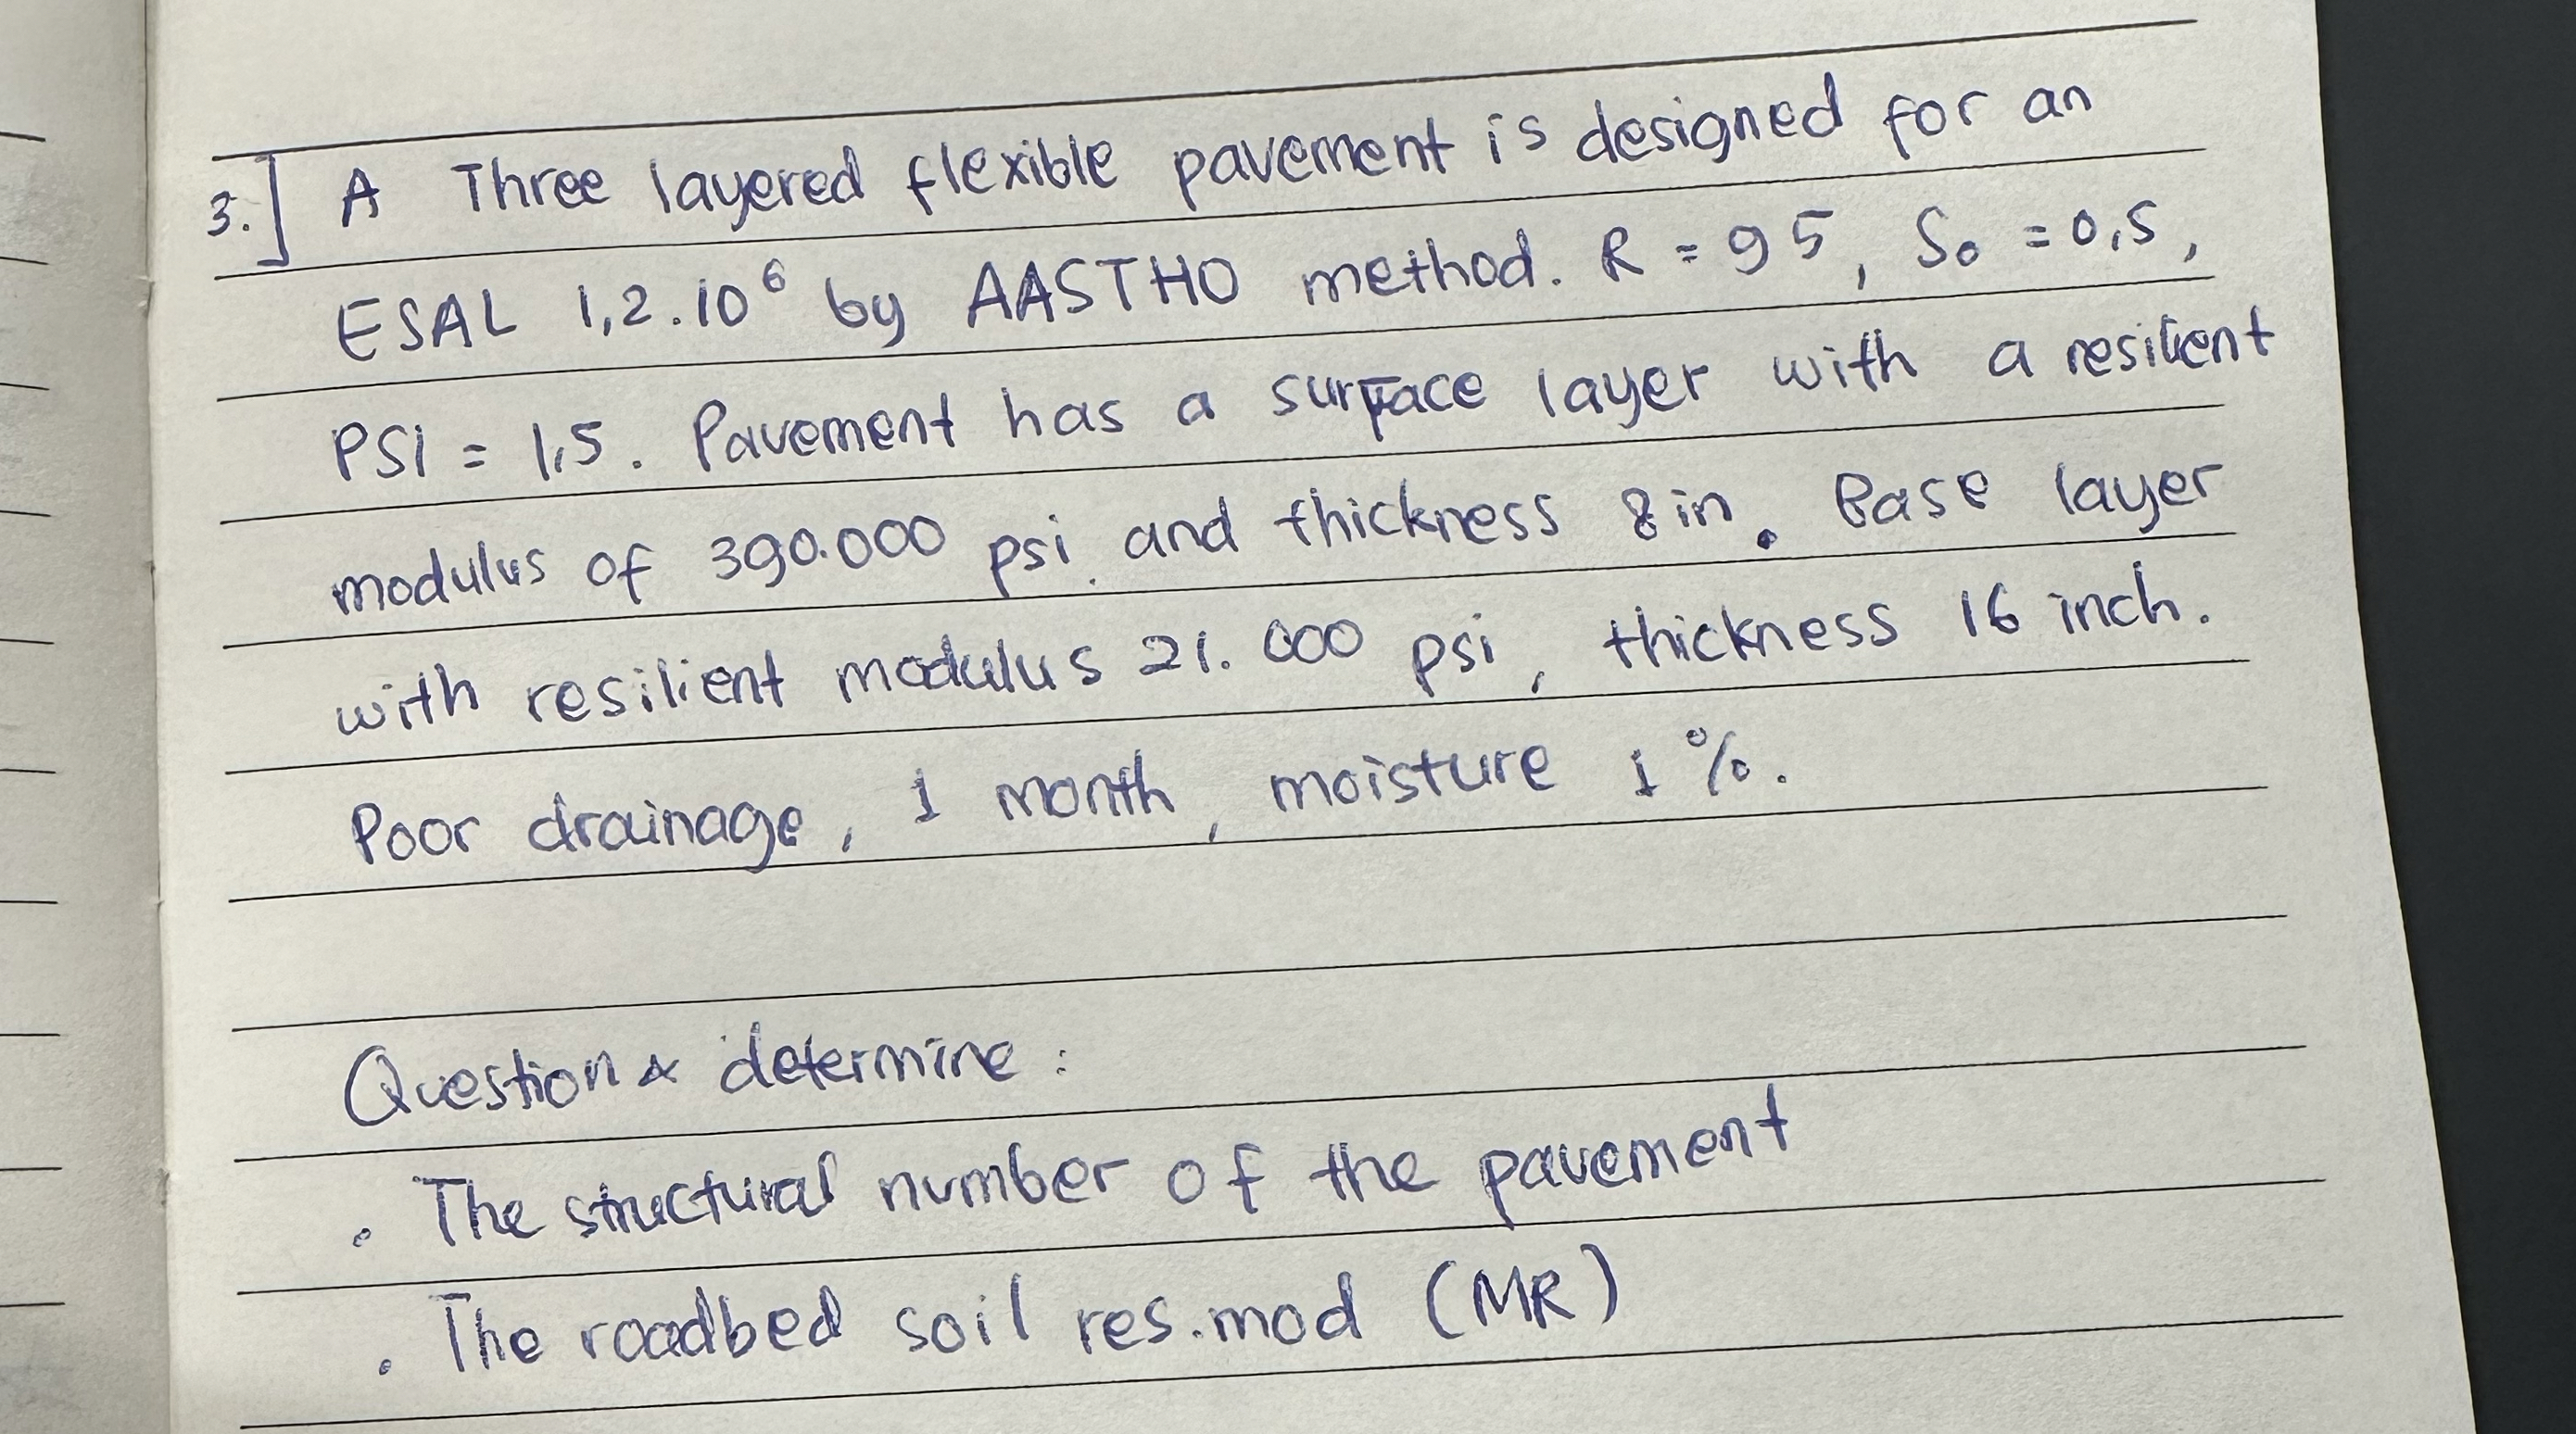 3.] A Three layered flexible pavement is designed for an
ESAL 1,2.10⁶ by AASTHO method. R = 95, So = 0,5,
PSI = 1,5. Pavement has a surface layer with a resilient
modulus of 390.000 psi. and thickness 8 in. Base layer
with resilient modulus 21.000 psi, thickness 16 inch.
Poor drainage, 1 month, moisture 1 %.
Question & determine :
. The structural number of the pavement
. The roadbed soil res.mod (MR)